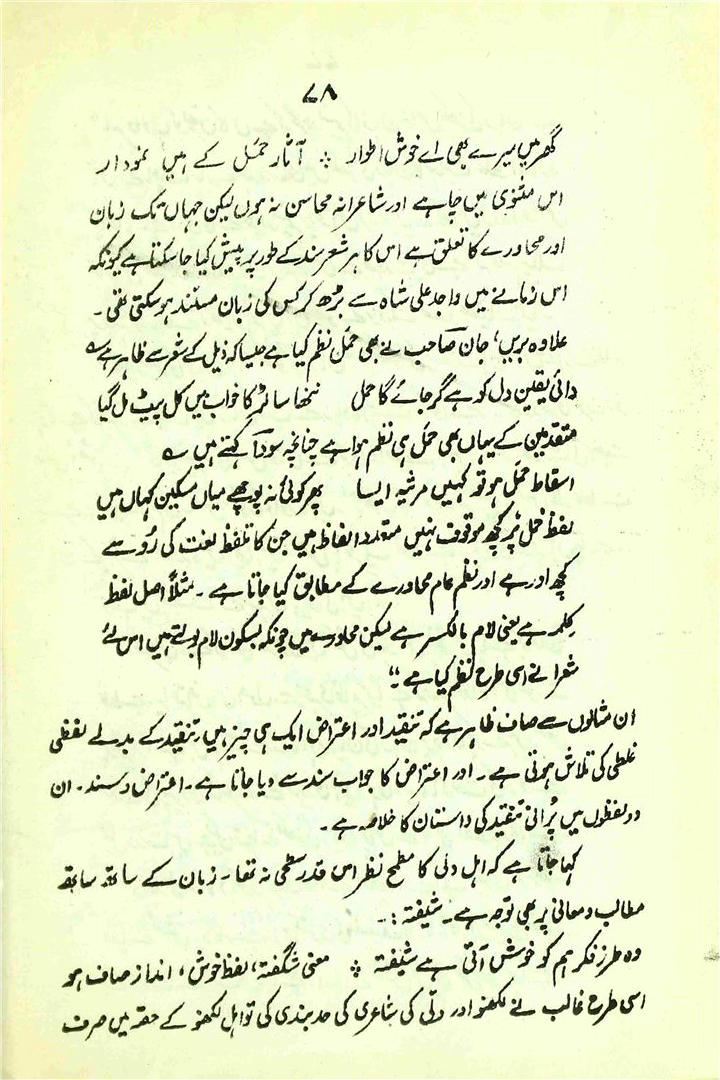 ۷۸
گھر میں میرے بھی اے خوش اطوار ؞ آثار حمَل کے ہیں نمودار
اس مثنوی میں چاہے اور شاعرانہ محاسن نہ ہوں لیکن جہاں تک زبان
اور محاورے کا تعلق ہے اس کا ہر شعر سند کے طور پر پیش کیا جا سکتا ہے کیونکہ
اس زمانے میں واجد علی شاہ سے بڑھ کر کس کی زبان مستند ہو سکتی تھی ۔
علاوہ بریں، جان صاحب نے بھی حمَل نظم کیا ہے جیسا کہ ذیل کے شعر سے ظاہر ہے ؎
دائی یقین دل کو ہے گر جائے گا حمل ننھا سا لڑکا خواب میں کل پیٹ مل گیا
متقدمین کے یہاں بھی حمَل ہی نظم ہوا ہے چنانچہ سوداؔ کہتے ہیں ؎
اسقاط حمَل ہو تو کہیں مرثیہ ایسا پھر کوئی نہ پوچھے میاں مسکین کہاں ہیں
لفظ حمل پر کچھ موقوف نہیں متعدد الفاظ ہیں جن کا تلفظ لغت کی رُو سے
کچھ اور ہے اور نظم عام محاورے کے مطابق کیا جاتا ہے ۔ مثلاً اصل لفظ
کلِمہ ہے یعنی لام بالکسر ہے لیکن محاورہ میں چونکہ بسکون لام بولتے ہیں اس لئے
شعرا نے اسی طرح نظم کیا ہے ۔"
ان مثالوں سے صاف ظاہر ہے کہ تنقید اور اعتراض ایک ہی چیز ہیں ۔ تنقید کے بدلے لفظی
غلطی کی تلاش ہوتی ہے ۔ اور اعتراض کا جواب سند سے دیا جاتا ہے ۔ اعتراض و سند ۔ ان
دو لفظوں میں پُرانی تنقید کی داستان کا خلاصہ ہے ۔
کہا جاتا ہے کہ اہل دلی کا مطمح نظر اس قدر سطحی نہ تھا ۔ زبان کے ساتھ ساتھ
مطالب و معانی پر بھی توجہ ہے ۔ شیفتہ :۔
وہ طرز فکر ہم کو خوش آتی ہے شیفتہ ؞ معنی شگفتہ، لفظ خوش، انداز صاف ہو
اسی طرح غالب نے لکھنؤ اور دلّی کی شاعری کی حد بندی کی تو اہل لکھنؤ کے حصّہ میں صرف